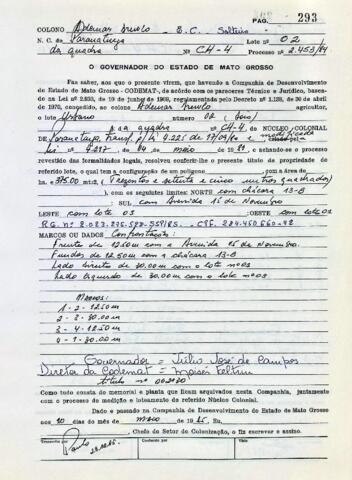 PAG. 293
COLONO Ademar Duolo E.C. Solteiro Lote nº 02
N. C. de Paranatinga
da quadra Nº CH-4 Processo nº 2.453/84
O GOVERNADOR DO ESTADO DE MATO GROSSO
Faz saber, aos que o presente virem, que havendo a Companhia de Desenvolvimento
do Estado de Mato Grosso - CODEMAT-, de acôrdo com os pareceres Técnico e Jurídico, baseados
na Lei nº 2.933, de 19 de junho de 1969, regulamentada pelo Decreto nº 1.128, de 30 de abril
de 1970, concedido, ao colono Ademar agricultor,
o lote Urbano nº 02
da quadra nº CH-4 do NÚCLEO COLONIAL
de Paranatinga Lei nº 4.225 de modificada
Lei 4.297 de 04 maio de e, achando-se o processo
revestido das formalidades legais, resolveu conferir-lhe o presente título de propriedade do
referido lote, o qual tem a configuração de um polígono de lados e área de
375,00 mts2, (Trezentos e setenta e cinco metros quadrados)
), com os seguintes limites: NORTE com chácara 13-B
: SUL com Avenida 15 de Novembro
LESTE com lote 03 :OESTE com lote 01
MARCOS OU DADOS Confrontações:
Frente de 12.50 m com a Avenida 15 de Novembro
Fundos de 12.50 m com a chácara 13-B
Lado Direito de 30.00 m com o lote nº
Lado Esquerdo de 30.00 m com o lote nº 03
Marcos:
1 - 2 - 12.50 m
2 - 3 - 30.00 m
3 - 4 - 12.50 m
4 - 1 - 30.00 m
Governador = Júlio José de Campos
Diretor da Codemat = Moisés Feltrin
título nº
Como tudo consta do memorial e planta que ficam arquivados nesta Companhia, juntamente
com o processo de medição e loteamento do referido Núcleo Colonial.
Dado e passado na Companhia de Desenvolvimento do Estado de Mato Grosso
aos 10 dias do mês de maio de 19
Chefe do Setor de Colonização, o fiz escrever e assino.
Conferido por Visto